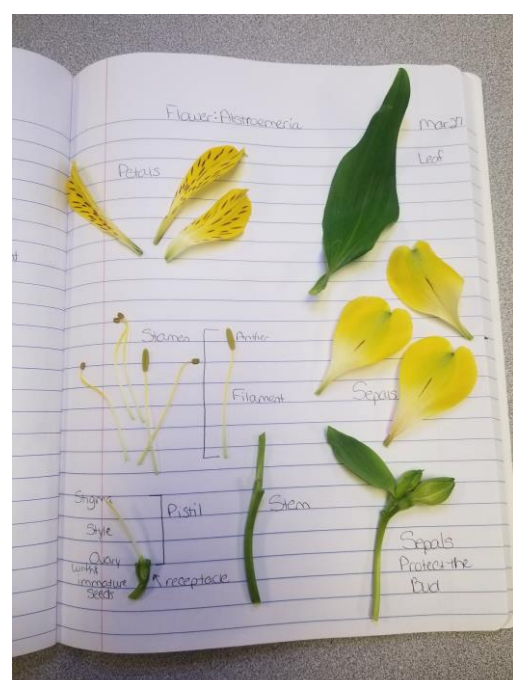 Flower: Alstroemeria
Mar 27
Leaf
Petals
Stamen
Anther
Filament
Sepals
Stigma
Pistil
Style
Stem
Ovary
with
immature
Seeds
receptacle
Sepals
Protect the
Bud